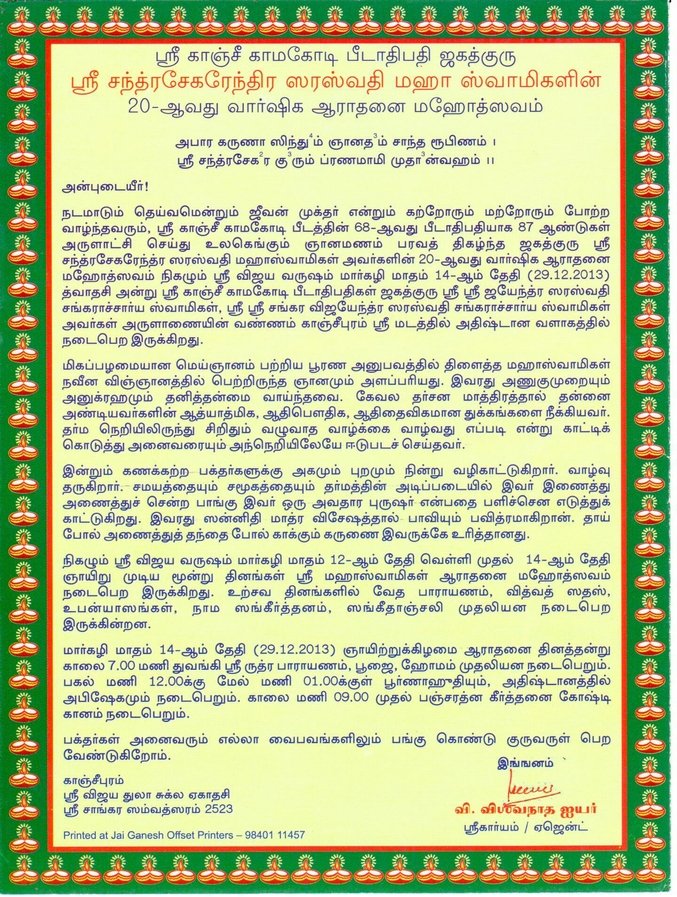 ஸ்ரீ காஞ்சீ காமகோடி பீடாதிபதி ஜகத்குரு
ஸ்ரீ சந்த்ரசேகரேந்திர ஸரஸ்வதி மஹா ஸ்வாமிகளின்
20-ஆவது வார்ஷிக ஆராதனை மஹோத்ஸவம்
அபார கருணா ஸிந்து⁴ம் ஞானத³ம் சாந்த ரூபிணம் ।
ஸ்ரீ சந்த்ரசேக²ர கு³ரும் ப்ரணமாமி முதா³ன்வஹம் ।।
அன்புடையீர்!
நடமாடும் தெய்வமென்றும் ஜீவன் முக்தர் என்றும் கற்றோரும் மற்றோரும் போற்ற
வாழ்ந்தவரும், ஸ்ரீ காஞ்சீ காமகோடி பீடத்தின் 68-ஆவது பீடாதிபதியாக 87 ஆண்டுகள்
அருளாட்சி செய்து உலகெங்கும் ஞானமணம் பரவத் திகழ்ந்த ஜகத்குரு ஸ்ரீ
சந்த்ரசேகரேந்த்ர ஸரஸ்வதி மஹாஸ்வாமிகள் அவர்களின் 20-ஆவது வார்ஷிக ஆராதனை
மஹோத்ஸவம் நிகழும் ஸ்ரீ விஜய வருஷம் மார்கழி மாதம் 14-ஆம் தேதி (29.12.2013)
த்வாதசி அன்று ஸ்ரீ காஞ்சீ காமகோடி பீடாதிபதிகள் ஜகத்குரு ஸ்ரீ ஸ்ரீ ஜயேந்த்ர ஸரஸ்வதி
சங்கராச்சார்ய ஸ்வாமிகள், ஸ்ரீ ஸ்ரீ சங்கர விஜயேந்த்ர ஸரஸ்வதி சங்கராச்சார்ய ஸ்வாமிகள்
அவர்கள் அருளாணையின் வண்ணம் காஞ்சீபுரம் ஸ்ரீ மடத்தில் அதிஷ்டான வளாகத்தில்
நடைபெற இருக்கிறது.
மிகப்பழமையான மெய்ஞானம் பற்றிய பூரண அனுபவத்தில் திளைத்த மஹாஸ்வாமிகள்
நவீன விஞ்ஞானத்தில் பெற்றிருந்த ஞானமும் அளப்பரியது. இவரது அணுகுமுறையும்
அனுக்ரஹமும் தனித்தன்மை வாய்ந்தவை. கேவல தர்சன மாத்திரத்தால் தன்னை
அண்டியவர்களின் ஆத்யாத்மிக, ஆதிபௌதிக, ஆதிதைவிகமான துக்கங்களை நீக்கியவர்.
தர்ம நெறியிலிருந்து சிறிதும் வழுவாத வாழ்க்கை வாழ்வது எப்படி என்று காட்டிக்
கொடுத்து அனைவரையும் அந்நெறியிலேயே ஈடுபடச் செய்தவர்.
இன்றும் கணக்கற்ற பக்தர்களுக்கு அகமும் புறமும் நின்று வழிகாட்டுகிறார். வாழ்வு
தருகிறார். சமயத்தையும் சமூகத்தையும் தர்மத்தின் அடிப்படையில் இவர் இணைத்து
அணைத்துச் சென்ற பாங்கு இவர் ஒரு அவதார புருஷர் என்பதை பளிச்சென எடுத்துக்
காட்டுகிறது. இவரது ஸன்னிதி மாத்ர விசேஷத்தால் பாவியும் பவித்ரமாகிறான். தாய்
போல் அணைத்துத் தந்தை போல் காக்கும் கருணை இவருக்கே உரித்தானது.
நிகழும் ஸ்ரீ விஜய வருஷம் மார்கழி மாதம் 12-ஆம் தேதி வெள்ளி முதல் 14-ஆம் தேதி
ஞாயிறு முடிய மூன்று தினங்கள் ஸ்ரீ மஹாஸ்வாமிகள் ஆராதனை மஹோத்ஸவம்
நடைபெற இருக்கிறது. உற்சவ தினங்களில் வேத பாராயணம், வித்வத் ஸதஸ்,
உபன்யாஸங்கள், நாம ஸங்கீர்த்தனம், ஸங்கீதாஞ்சலி முதலியன நடைபெற
இருக்கின்றன.
மார்கழி மாதம் 14-ஆம் தேதி (29.12.2013) ஞாயிற்றுக்கிழமை ஆராதனை தினத்தன்று
காலை 7.00 மணி துவங்கி ஸ்ரீ ருத்ர பாராயணம், பூஜை, ஹோமம் முதலியன நடைபெறும்.
பகல் மணி 12.00க்கு மேல் மணி 01.00க்குள் பூர்ணாஹுதியும், அதிஷ்டானத்தில்
அபிஷேகமும் நடைபெறும். காலை மணி 09.00 முதல் பஞ்சரத்ன கீர்த்தனை கோஷ்டி
கானம் நடைபெறும்.
பக்தர்கள் அனைவரும் எல்லா வைபவங்களிலும் பங்கு கொண்டு குருவருள் பெற
வேண்டுகிறோம்.
இங்ஙனம்
காஞ்சீபுரம்
ஸ்ரீ விஜய துலா சுக்ல ஏகாதசி
ஸ்ரீ சாங்கர ஸம்வத்ஸரம் 2523
வி. விஸ்வநாத ஐயர்
ஸ்ரீகார்யம் / ஏஜென்ட்
Printed at Jai Ganesh Offset Printers – 98401 11457